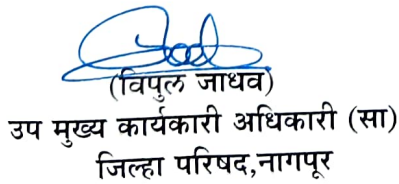 (विपुल जाधव)
उप मुख्य कार्यकारी अधिकारी (सा)
जिल्हा परिषद,नागपूर